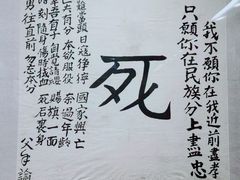 我不願你在我近前盡孝
只願你在民族分上盡忠
死
難當頭日寇猙獰 國家興亡
夫有分本欲服役 奈過年齡
吾有子自覺請纓 賜旗一面
時刻隨身傷時拭血 死后裹身
勇往直前勿忘本分
父手諭